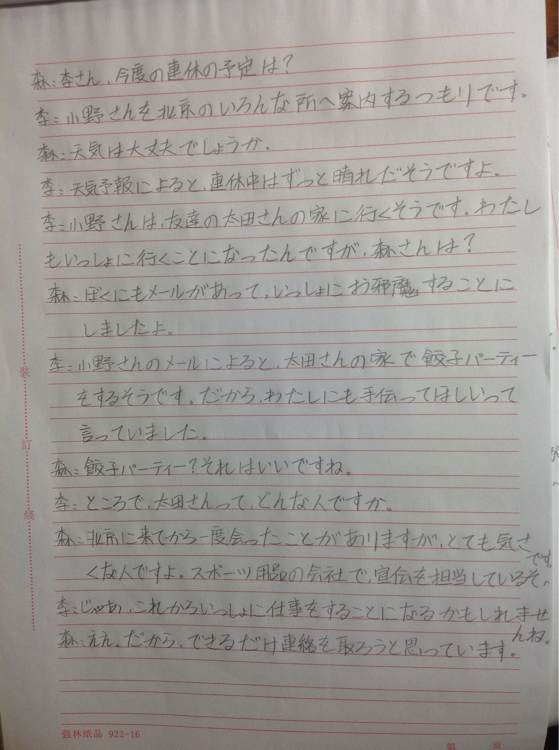 森：李さん、今度の連休の予定は？
李：小野さんを北京のいろんな所へ案内するつもりです。
森：天気は大丈夫でしょうか。
李：天気予報によると、連休中はずっと晴れだそうですよ。
李：小野さんは、友達の太田さんの家に行くそうです。わたし
もいっしょに行くことになったんですが、森さんは？
森：ぼくにもメールがあって、いっしょにお邪魔することに
しましたよ。
李：小野さんのメールによると、太田さんの家で餃子パーティー
をするそうです。だから、わたしにも手伝ってほしいって
言っていました。
森：餃子パーティー？それはいいですね。
李：ところで、太田さんって、どんな人ですか。
森：北京に来てから一度会ったことがありますが、とても気さ
くな人ですよ。スポーツ用品の会社で、宣伝を担当しているそ
うです。
李：じゃあ、これからいっしょに仕事をすることになるかもしれませ
んね。
森：ええ。だから、できるだけ連絡を取ろうと思っています。
装
訂
線
強林纸品 922-16
第 页